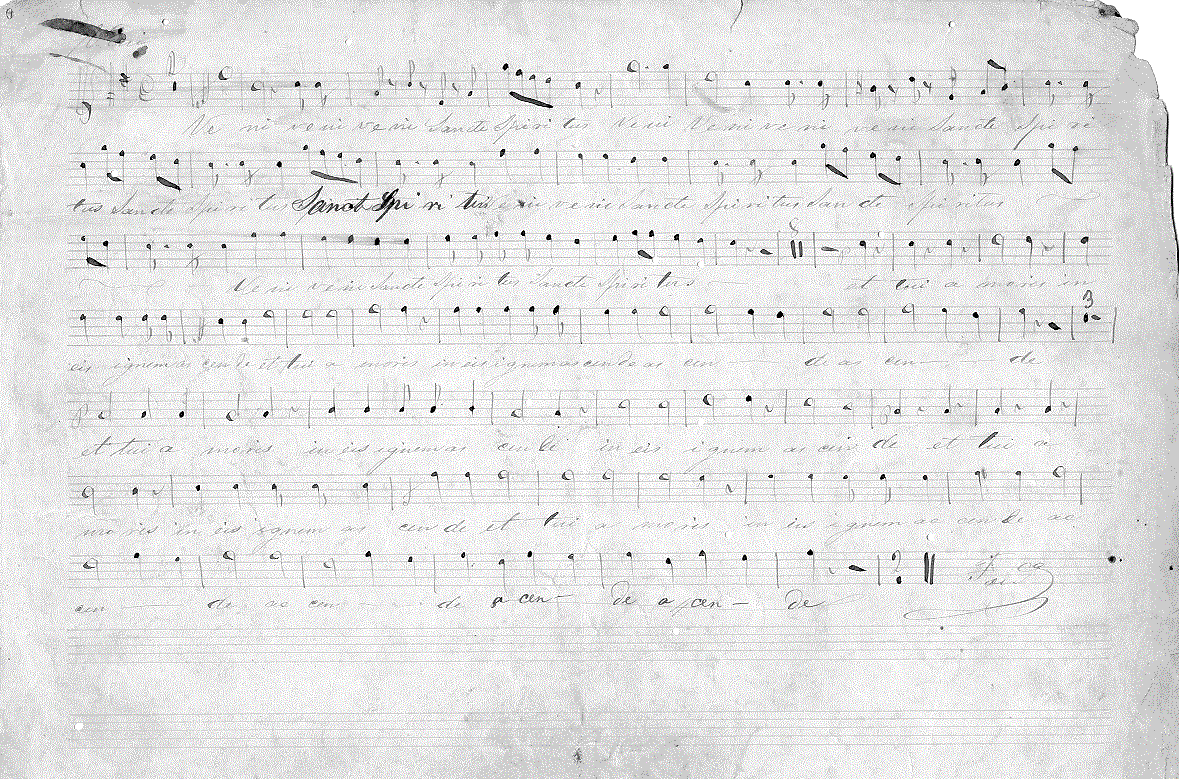 Ve ni veni veni Sancte Spiri tus veni Veni veni veni Sancte Spi ri
tus Sancte Spiri tus Sanct Spi ri tus veni veni Sancte Spiritus San cte Spiritus
Veni veni Sancte Spiri tus Sancte Spiri tus t tui a moris in
eis ignem as cen de et tui a moris in eis ignem ascende as cen — de as cen — de
et tui a moris in eis ignem as cen de in eis ignem as cen de et tui a
moris in eis ignem as cen de et tui a moris in eis ignem as cen de as
cen — de as cen — de a cen — de a cen — de